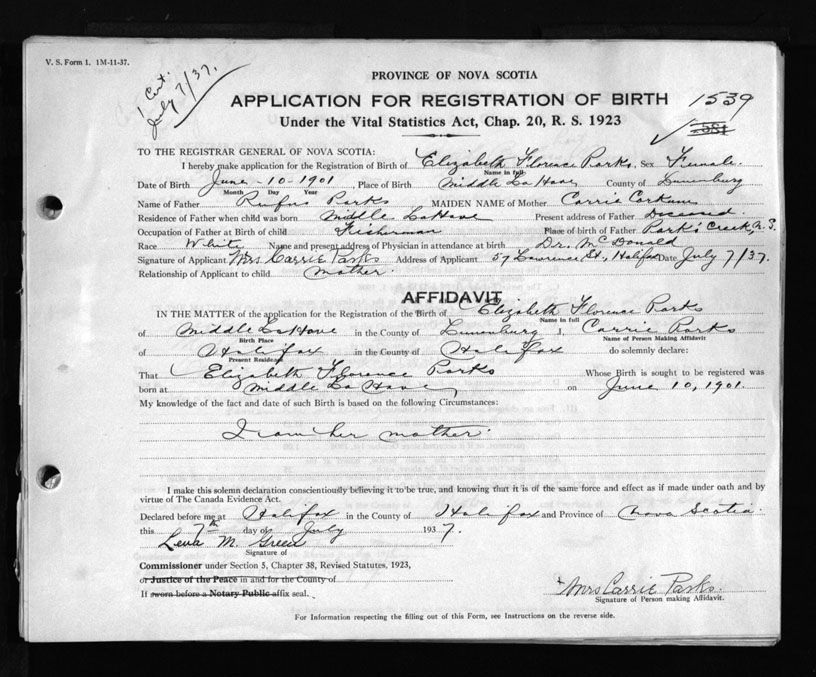 V. S. Form 1. 1M-11-37.
1 Cert.
July 7/37.
PROVINCE OF NOVA SCOTIA
APPLICATION FOR REGISTRATION OF BIRTH 1539
Under the Vital Statistics Act, Chap. 20, R. S. 1923
TO THE REGISTRAR GENERAL OF NOVA SCOTIA:
I hereby make application for the Registration of Birth of Elizabeth Florence Parks Sex Female
Name in full
Date of Birth June 10 1901, Place of Birth Middle LaHave County of Lunenburg
Month Day Year
Name of Father Rufus Parks MAIDEN NAME of Mother Carrie Corkum
Residence of Father when child was born Middle LaHave Present address of Father Deceased
Occupation of Father at Birth of child Fisherman Place of birth of Father Park's Creek, N.S.
Race White Name and present address of Physician in attendance at birth Dr. McDonald
Signature of Applicant Mrs Carrie Parks Address of Applicant 57 Lawrence St., Halifax Date July 7/37.
Relationship of Applicant to child mother.
AFFIDAVIT
IN THE MATTER of the application for the Registration of the Birth of Elizabeth Florence Parks
Name in full
of Middle LaHave in the County of Lunenburg I, Carrie Parks
Birth Place Name of Person Making Affidavit
of Halifax in the County of Halifax do solemnly declare:
Present Residence
That Elizabeth Florence Parks Whose Birth is sought to be registered was
born at Middle LaHave on June 10, 1901.
My knowledge of the fact and date of such Birth is based on the following Circumstances:
I am her mother.
I make this solemn declaration conscientiously believing it to be true, and knowing that it is of the same force and effect as if made under oath and by
virtue of The Canada Evidence Act.
Declared before me at Halifax in the County of Halifax and Province of Nova Scotia.
this 7th day of July 1937.
Lena M. Green
Signature of
Commissioner under Section 5, Chapter 38, Revised Statutes, 1923,
or Justice of the Peace in and for the County of
If sworn before a Notary Public affix seal.
Mrs Carrie Parks.
Signature of Person making Affidavit.
For Information respecting the filling out of this Form, see Instructions on the reverse side.